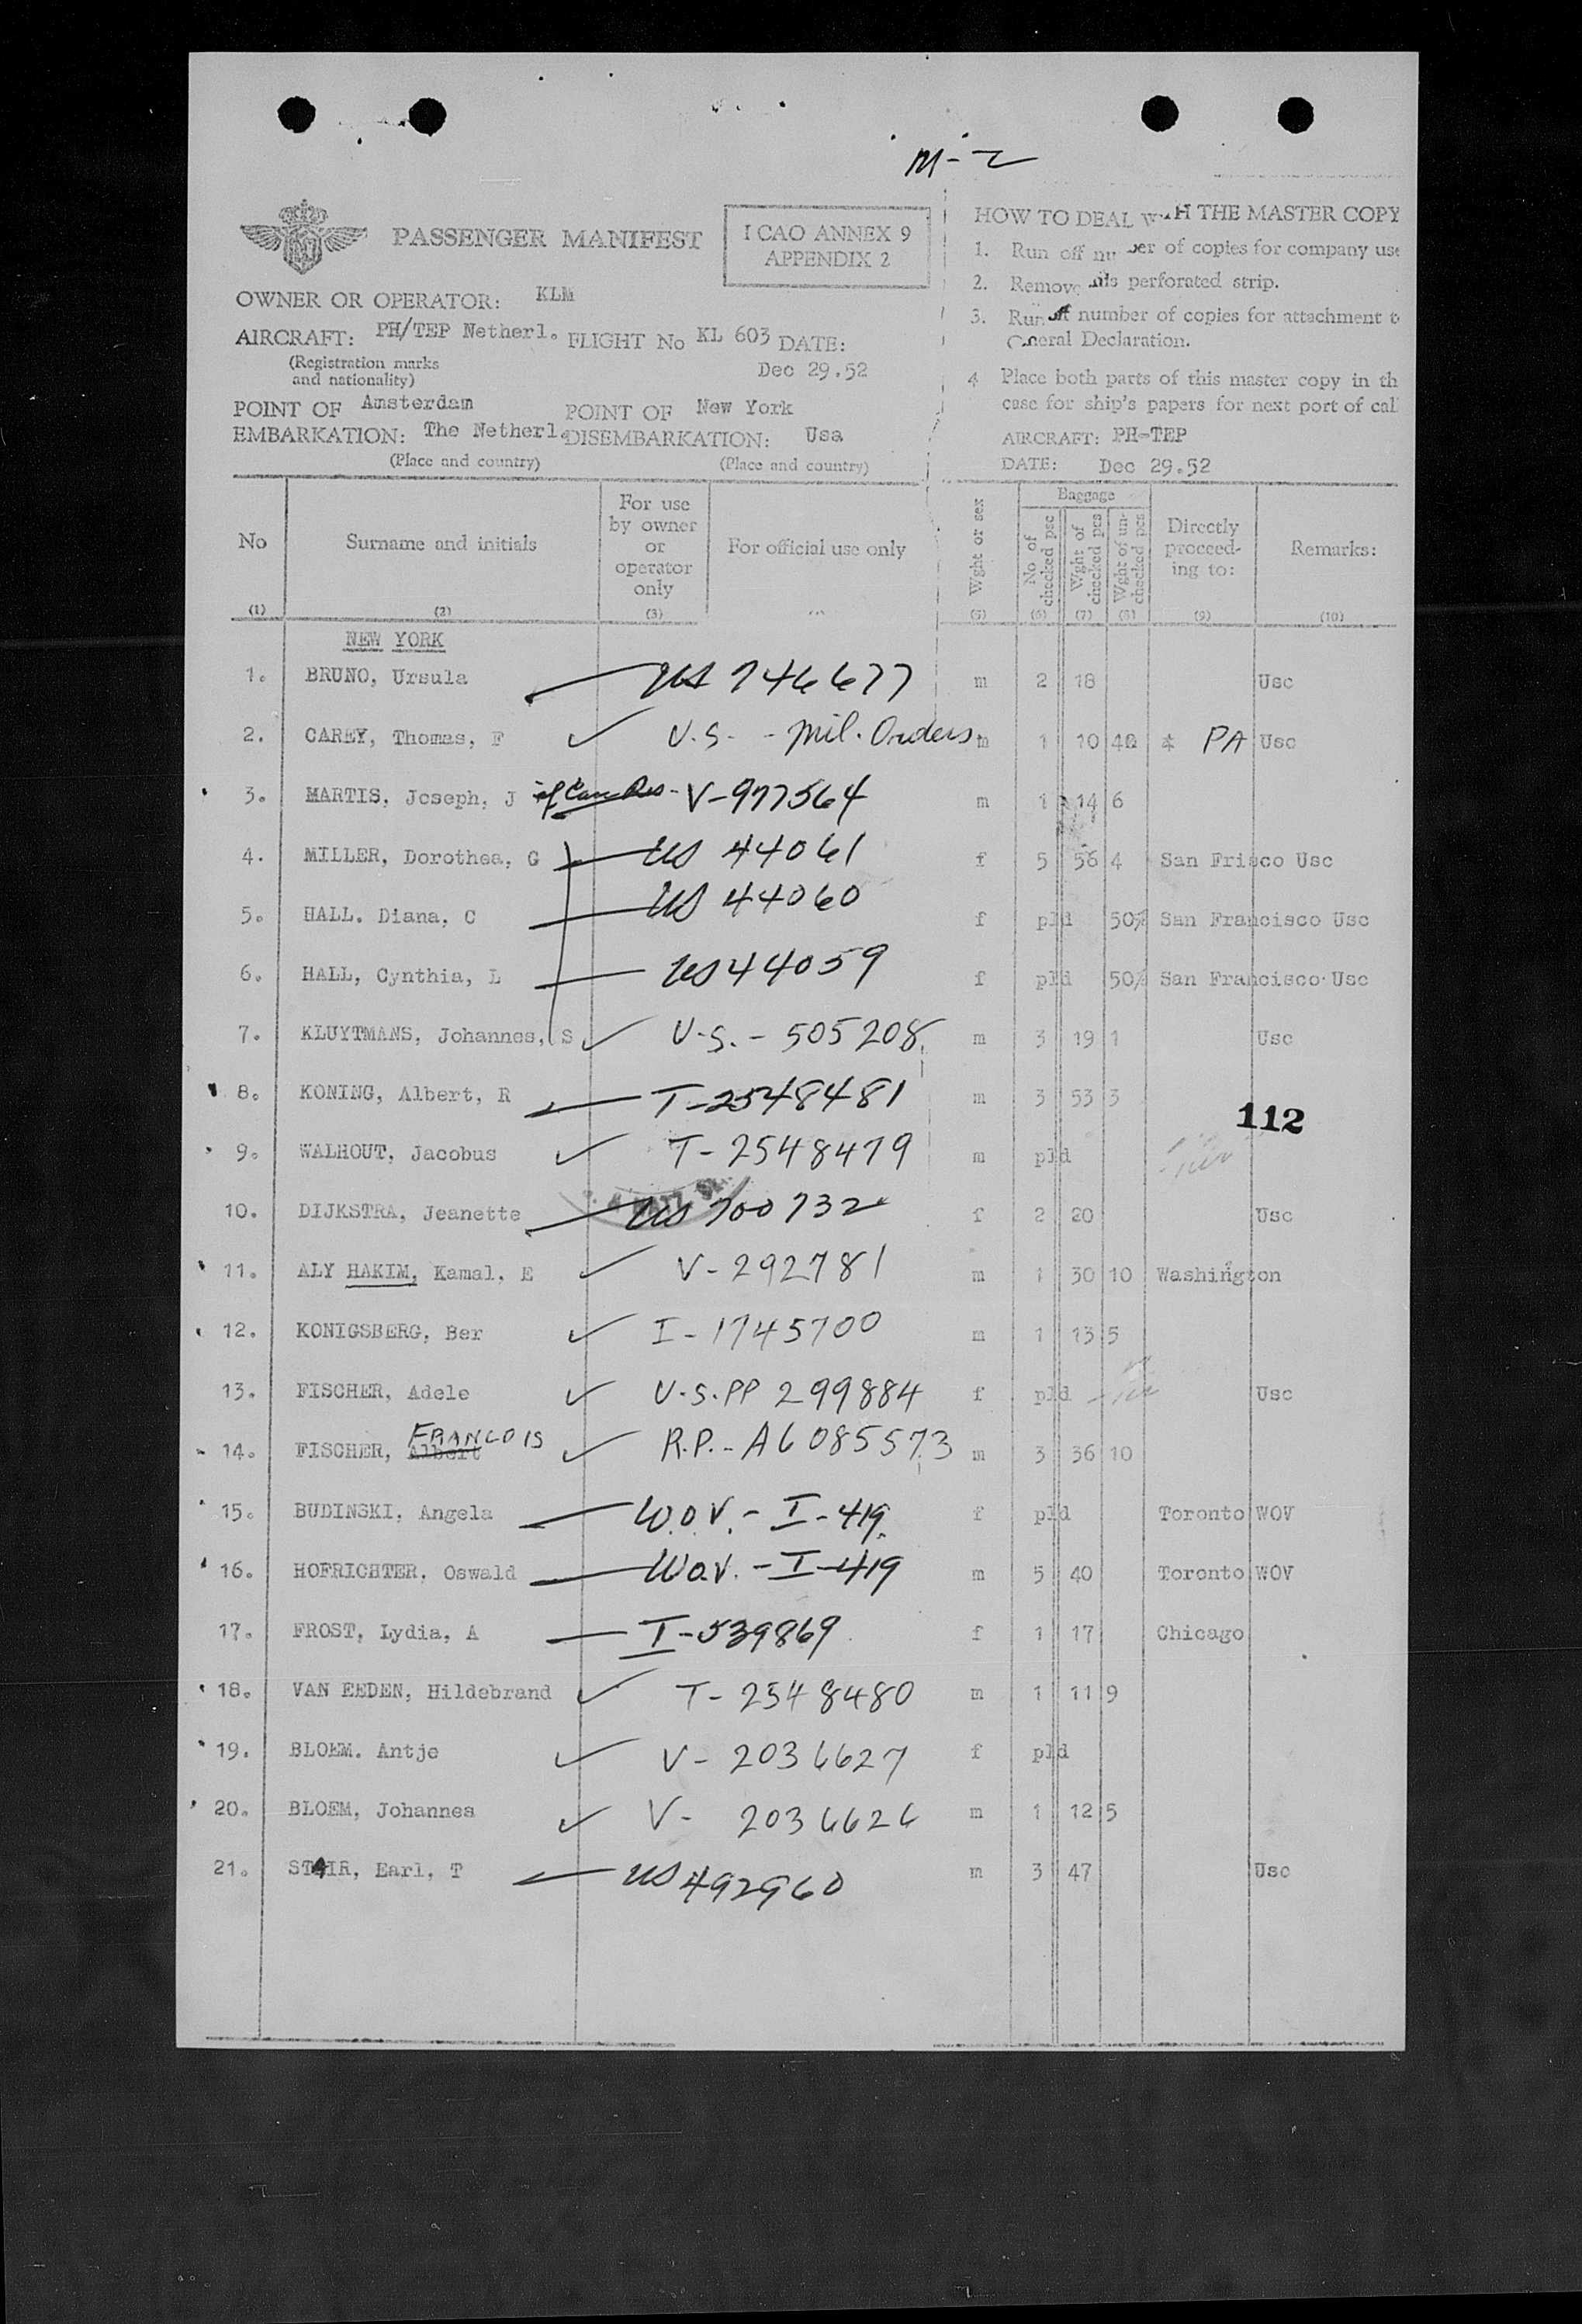 M-2
PASSENGER MANIFEST
I CAO ANNEX 9
APPENDIX 2
OWNER OR OPERATOR: KLM
AIRCRAFT: PH/TEP Netherl. FLIGHT No KL 603 DATE:
(Registration marks
and nationality)
Dec 29.52
POINT OF Amsterdam POINT OF New York
EMBARKATION: The Netherl. DISEMBARKATION: Usa
(Place and country) (Place and country)
HOW TO DEAL THE MASTER COPY
1. Run off of copies for company use
2. Remove this perforated strip.
3. Run off number of copies for attachment to
General Declaration.
4 Place both parts of this master copy in th
case for ship's papers for next port of cal
AIRCRAFT: PH-TEP
DATE: Dec 29.52
No Surname and initials For use by owner or operator only For official use only Wght or sex Baggage No of checked psc Wght of checked pcs Wght of un-checked pcs Directly proceed-ing to: Remarks:
(1) (2) (3) (5) (6) (7) (8) (9) (10)
NEW YORK
1. BRUNO, Ursula US 746677 m 2 18 Usc
2. CAREY, Thomas, F U.S. - Mil. Orders m 1 10 PA Usc
3. MARTIS, Joseph, J V-977564 m 1 14 6
4. MILLER, Dorothea, G US 44061 f 5 56 4 San Frisco Usc
5. HALL. Diana, C US 44060 f pld 50% San Francisco Usc
6. HALL, Cynthia, L US 44059 f pld 50% San Francisco Usc
7. KLUYTMANS, Johannes, S U.S. - 505208 m 3 19 1 Usc
8. KONING, Albert, R T-2548481 m 3 53 3
112
9. WALHOUT, Jacobus T-2548479 m pld
10. DIJKSTRA, Jeanette US 700732 f 2 20 Usc
11. ALY HAKIM, Kamal, E V-292781 m 1 30 10 Washington
12. KONIGSBERG, Ber I-1745700 m 1 13 5
13. FISCHER, Adele U.S.PP 299884 f pld Usc
FRANCOIS
14. FISCHER, Albert R.P.-A6085573 m 3 36 10
15. BUDINSKI, Angela W.O.V.-I-419 f pld Toronto WOV
16. HOFRICHTER, Oswald W.O.V.-I-419 m 5 40 Toronto WOV
17. FROST, Lydia, A I-539869 f 1 17 Chicago
18. VAN EEDEN, Hildebrand T-2548480 m 1 11 9
19. BLOEM. Antje V-2036627 f pld
20. BLOEM, Johannes V-2036626 m 1 12 5
21. STAIR, Earl, T US 492960 m 3 47 Usc